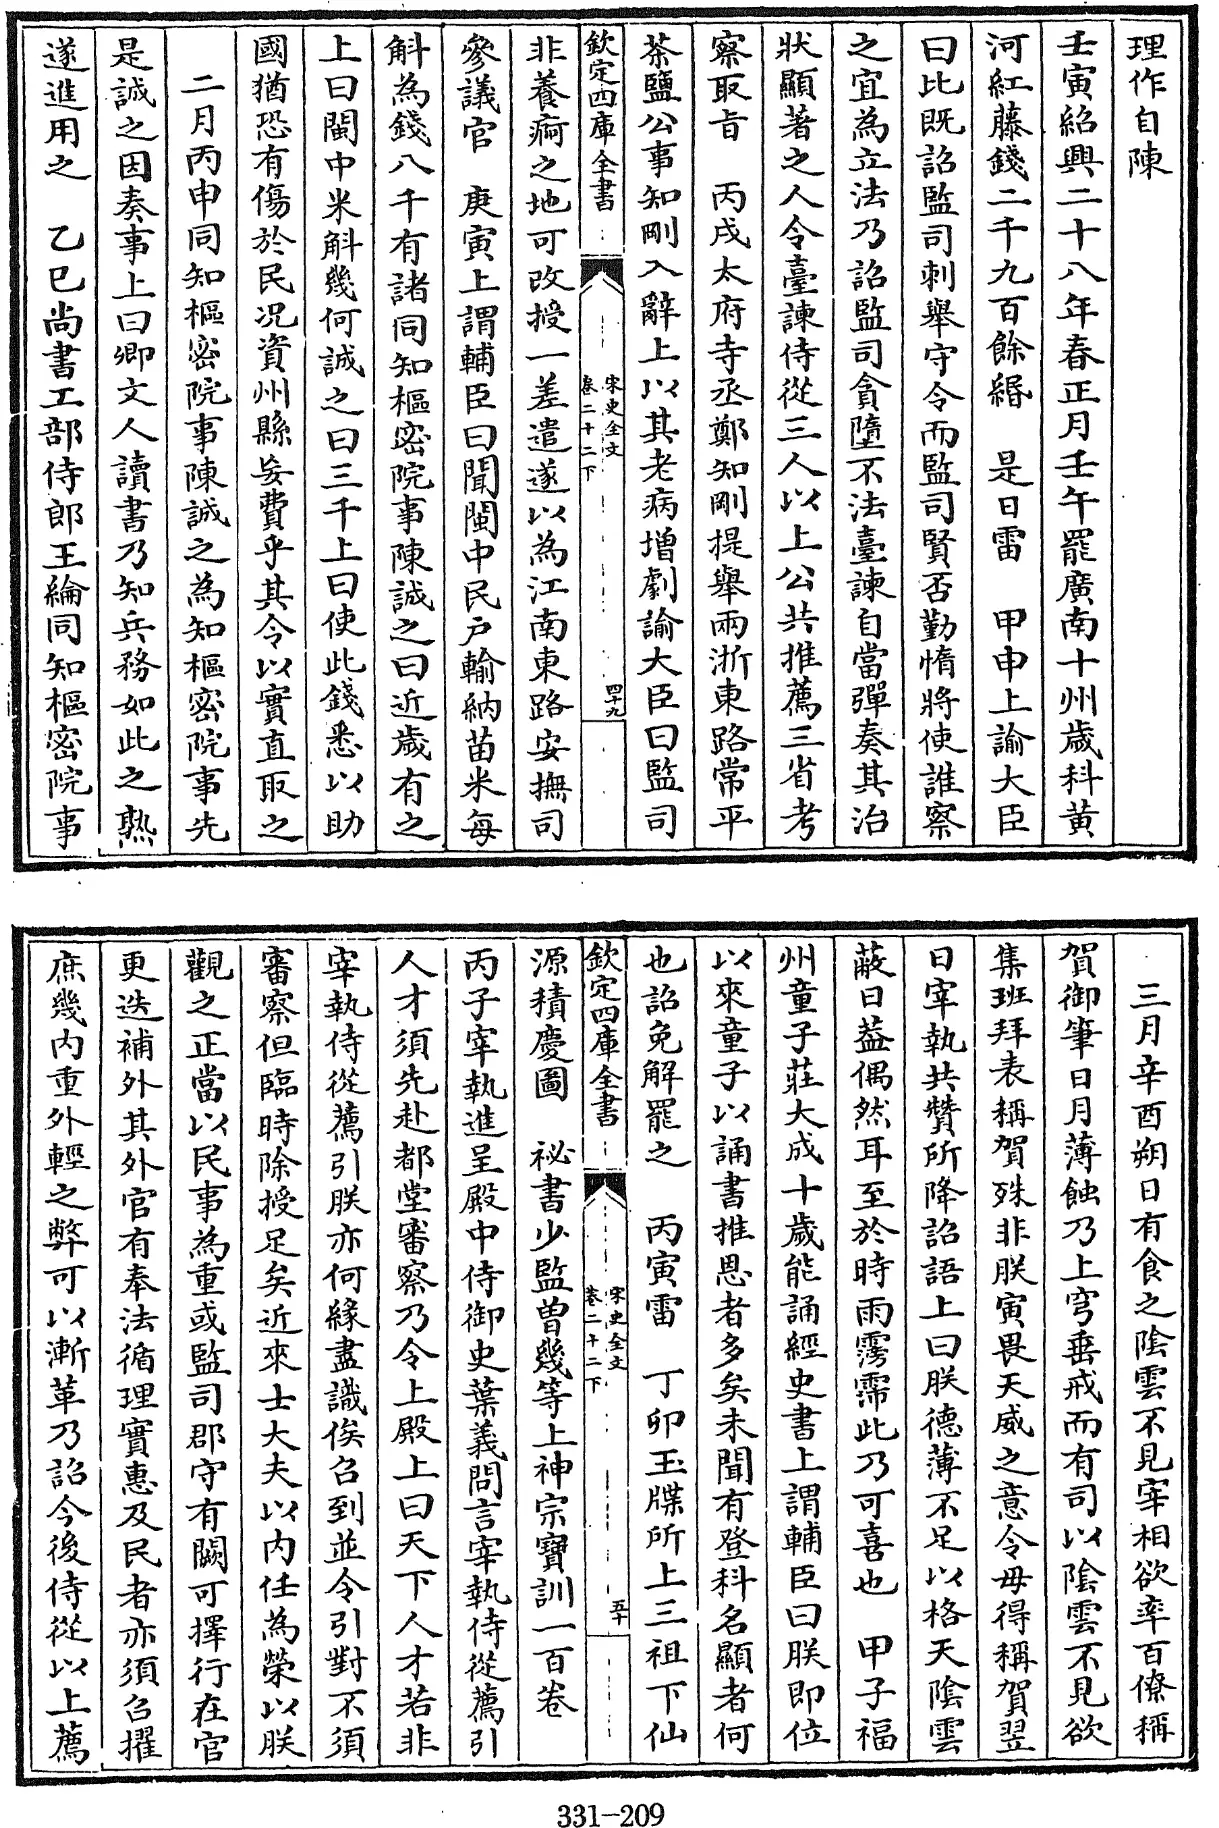 理作自陳
壬寅紹興二十八年春正月壬午罷廣南十州歲科黄
河紅藤錢二千九百餘緡　是日雷　甲申上諭大臣
曰比既詔監司刺舉守令而監司賢否勤惰將使誰察
之宜為立法乃詔監司貪墮不法臺諫自當彈奏其治
狀顯著之人令臺諫侍從三人以上公共推薦三省考
察取旨　丙戌太府寺丞鄭知剛提舉兩浙東路常平
茶鹽公事知剛入辭上以其老病增劇諭大臣曰監司
欽定四庫全書
宋史全文
卷二十二下
四十九
非養疴之地可改授一差遣遂以為江南東路安撫司
參議官　庚寅上謂輔臣曰聞閩中民户輸納苗米每
斛為錢八千有諸同知樞密院事陳誠之曰近歲有之
上曰閩中米斛幾何誠之曰三千上曰使此錢悉以助
國猶恐有傷於民况資州縣妄費乎其令以實直取之
二月丙申同知樞密院事陳誠之為知樞密院事先
是誠之因奏事上曰卿文人讀書乃知兵務如此之熟
遂進用之　乙巳尚書工部侍郎王綸同知樞密院事
三月辛酉朔日有食之陰雲不見宰相欲率百僚稱
賀御筆日月薄蝕乃上穹垂戒而有司以陰雲不見欲
集班拜表稱賀殊非朕寅畏天威之意令毋得稱賀翌
日宰執共贊所降詔語上曰朕德薄不足以格天陰雲
蔽日葢偶然耳至於時雨霶霈此乃可喜也　甲子福
州童子莊大成十歲能誦經史書上謂輔臣曰朕即位
以來童子以誦書推恩者多矣未聞有登科名顯者何
也詔免解罷之　丙寅雷　丁卯玉牒所上三祖下仙
欽定四庫全書
宋史全文
卷二十二下
五十
源積慶圖　祕書少監曾幾等上神宗寶訓一百卷
丙子宰執進呈殿中侍御史葉義問言宰執侍從薦引
人才須先赴都堂審察乃令上殿上曰天下人才若非
宰執侍從薦引朕亦何緣盡識俟召到並令引對不須
審察但臨時除授足矣近來士大夫以内任為榮以朕
觀之正當以民事為重或監司郡守有闕可擇行在官
更迭補外其外官有奉法循理實惠及民者亦須召擢
庶幾内重外輕之弊可以漸革乃詔今後侍從以上薦
331-209